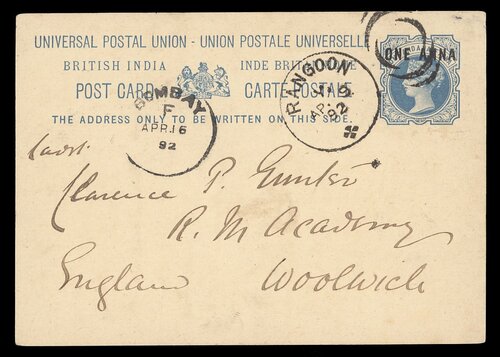 UNIVERSAL POSTAL UNION - UNION POSTALE UNIVERSELLE
ONE ANNA
BRITISH INDIA INDE BRITANNIQUE
POST CARD CARTE POSTALE
THE ADDRESS ONLY TO BE WRITTEN ON THIS SIDE.
BOMBAY
F
APR.16
92
RANGOON
AP.
92
Clarence P. Gunter
R. M Academy
England Woolwich